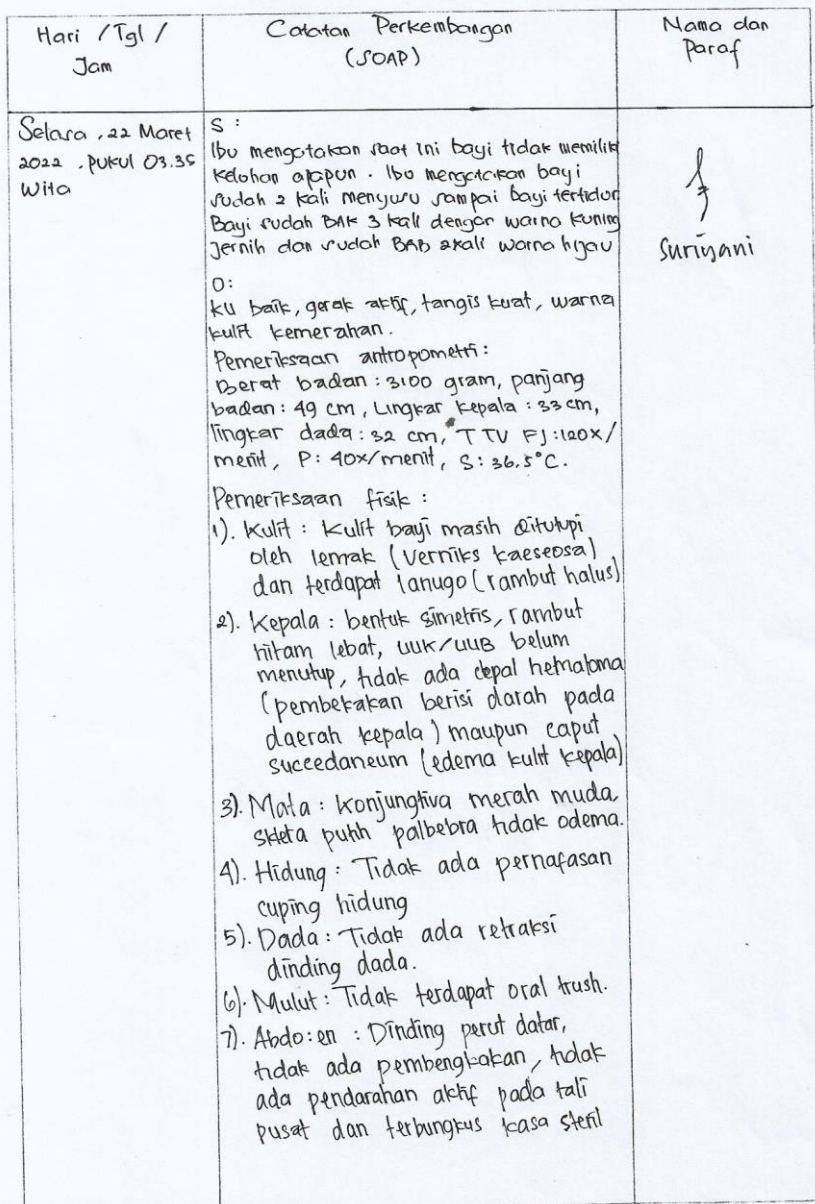 Hari / Tgl /
Jam
Catatan Perkembangan
(SOAP)
Nama dan
Paraf
Selasa, 22 Maret
2022. pukul 03.35
Wita
S :
Ibu mengatakan saat ini bayi tidak memilik
Kelohan apapun. Ibu mengatakan bayi
sudah 2 kali menyusu sampai bayi tertidur
Bayi sudah BAK 3 kali dengar warna kuning
Jernih dan sudah BAB 2kali warna hijau
O:
KU baik, gerak aktif, tangis kuat, warna
kulit kemerahan.
Pemeriksaan antropometri:
Berat badan: 3100 gram, panjang
badan: 49 cm, Lingkar kepala: 33 cm,
lingkar dada: 32 cm, TTV FJ: 120x/
menit, P: 40x/menit, S: 36.5°C.
Pemeriksaan fisik :
1). Kulit : Kulit bayi masih ditutupi
oleh lemak (Verniks kaeseosa)
dan terdapat lanugo (rambut halus)
2). Kepala : bentuk simetris, rambut
hitam lebat, UUK/UUB belum
menutup, tidak ada cepal hematoma
(pembekakan berisi darah pada
daerah kepala) maupun caput
succedaneum (edema kulit kepala)
3). Mata : konjungtiva merah muda,
sklera putih palbebra tidak odema.
4). Hidung : Tidak ada pernafasan
cuping hidung
5). Dada : Tidak ada retraksi
dinding dada.
6). Mulut : Tidak terdapat oral trush.
7). Abdo:en : Dinding perut datar,
tidak ada pembengkakan, tidak
ada pendarahan aktif pada tali
pusat dan terbungkus kasa steril
Suriyani